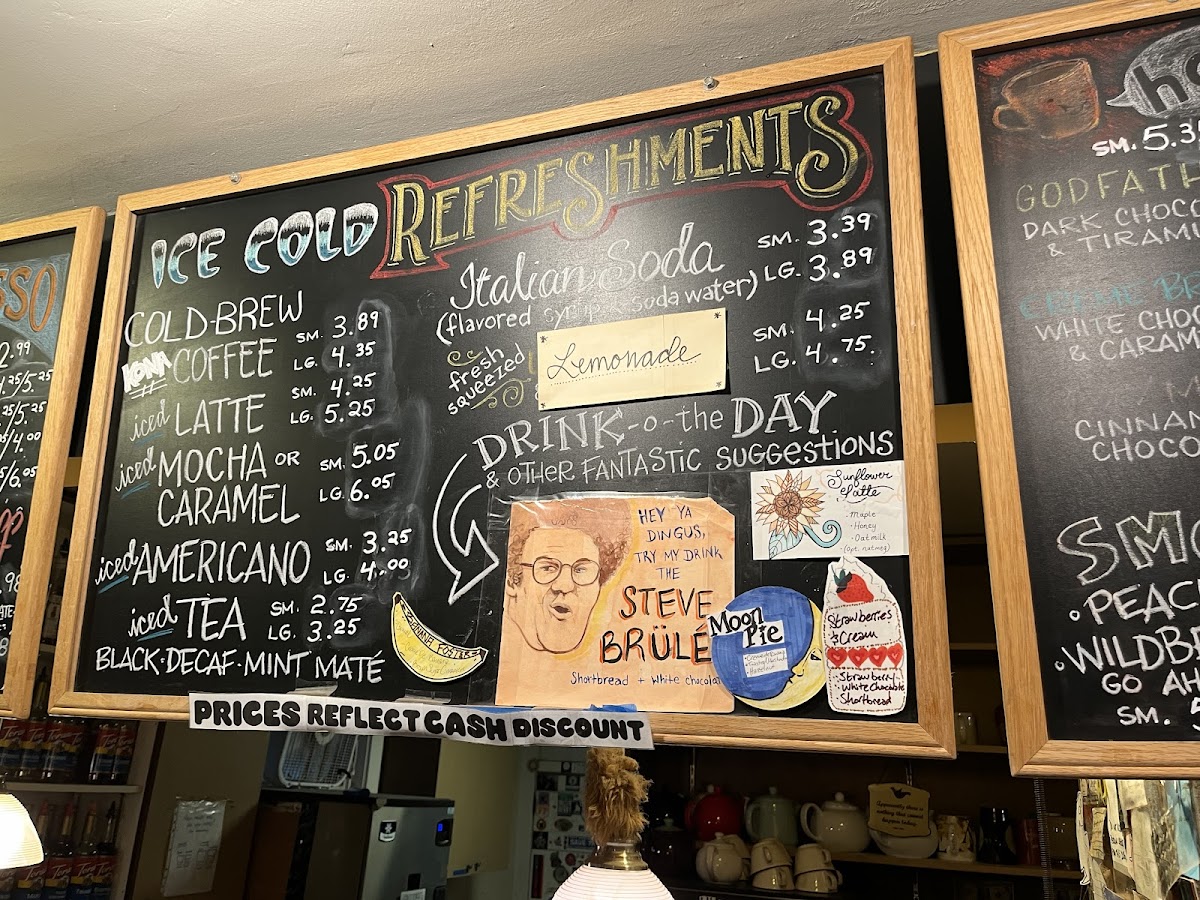 ICE COLD REFRESHMENTS
COLD-BREW
KONA COFFEE
SM. 3.89
LG. 4.35
iced LATTE
SM. 4.25
LG. 5.25
iced MOCHA OR
CARAMEL
SM. 5.05
LG. 6.05
iced AMERICANO
SM. 3.25
LG. 4.00
iced TEA
SM. 2.75
LG. 3.25
BLACK·DECAF·MINT MATÉ
Italian Soda
(flavored syrup & soda water)
SM. 3.39
LG. 3.89
fresh
squeezed
Lemonade
SM. 4.25
LG. 4.75.
DRINK-o-the DAY
& OTHER FANTASTIC SUGGESTIONS
HEY YA
DINGUS,
TRY MY DRINK
THE
STEVE
BRÜLÉ
Shortbread + white chocolate
Sunflower
Latte
- Maple
· Honey
· Oatmilk
· (Opt. nutmeg)
BANANA FOSTER
Moon
Pie
Strawberries
& Cream
· Strawberry
· White Chocolate
· Shortbread
PRICES REFLECT CASH DISCOUNT
SSO
2.99
.25/5.25
/4.00
/6.05
.98
SM. 5.3
GODFATH
DARK CHOCO
& TIRAMI
WHITE CHOC
& CARAM
CINNAN
CHOCO
SMO
· PEAC
· WILDB
GO AH
SM. 5
Torani